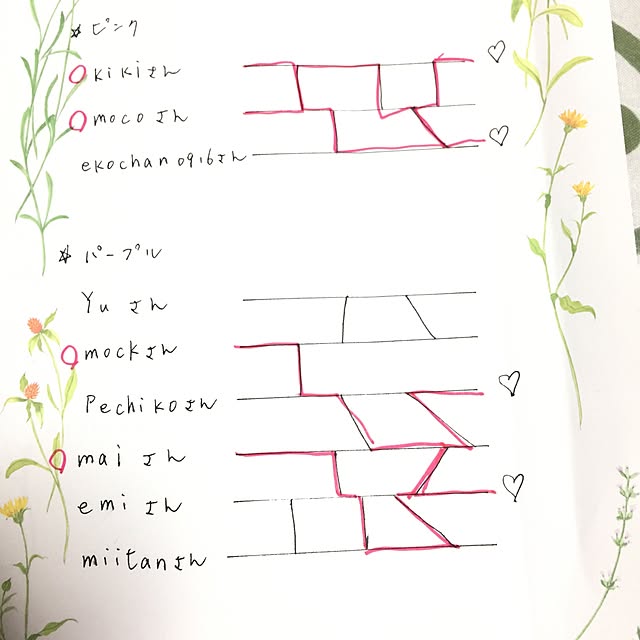 ☆ ピンク
kikiさん
mocoさん
ekochan0916さん
☆ パープル
Yuさん
mockさん
Pechikoさん
maiさん
emiさん
miitanさん